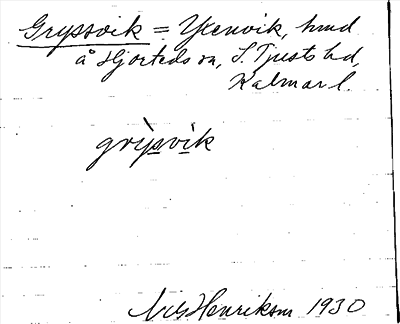 Gryssvik = Ykenvik, hmd
å Hjorteds sn, S. Tjusts hd,
Kalmar l.
grỳsvik
Nils Henrikson 1930